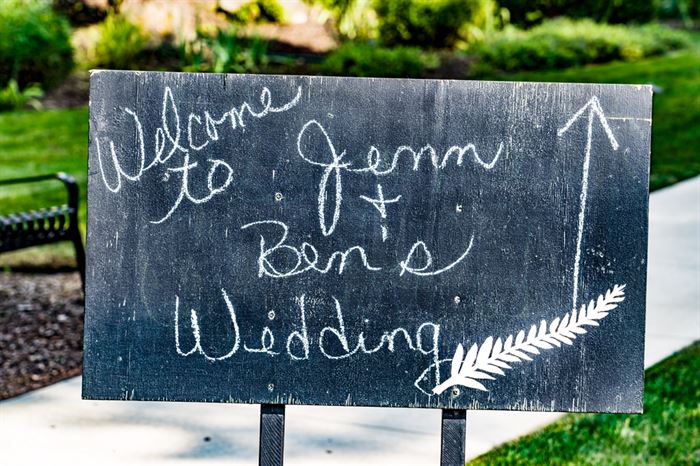 Welcome
to Jenn
+
Ben's
Wedding